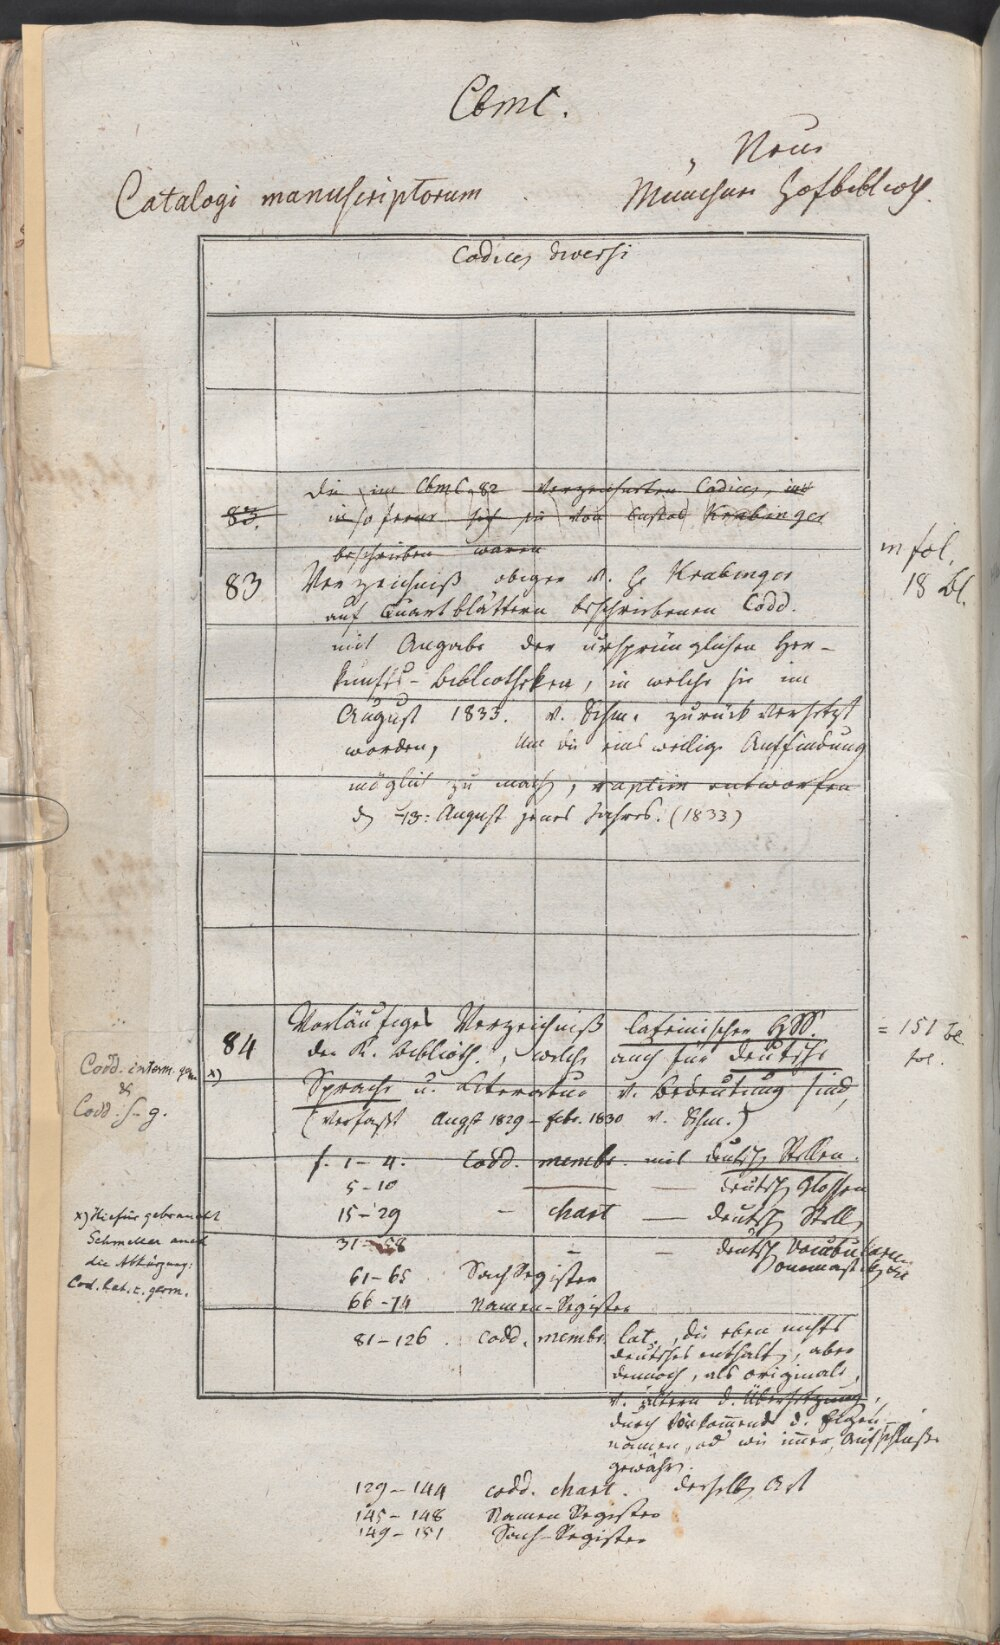 CbmC.
Neue
Catalogi manuscriptorum
Münchner Hofbiblioth.
Codices diversi
die im CbmC. 82 verzeichneten Codices,
83. in so ferne sie von Custos Krabinger
beschrieben waren
in fol.
18 Bl.
83 Verzeichniß obiger v. H. Krabinger
auf Quartblättern beschriebenen Codd.
mit Angabe der ursprünglichen Her-
kunfts-Bibliotheken, in welche sie im
August 1833. v. Schm. zurück versetzt
worden, um die einsweilige Auffindung
möglich zu mach, raptim entworfen
d 13. August jenes Jahres. (1833)
84 Vorläufiges Verzeichniß lateinischer HSS.
der K. Biblioth., welche auch für deutsche
Sprache u. Literatur v. Bedeutung sind,
(verfaßt Augst 1829 – febr. 1830 v. Schm.)
= 151 Bl.
fol.
Codd. interm. ger.
&
Codd. s. g.
x)
x) Hiefür gebraucht
Schmeller auch
die Abkürzung:
Cod. lat. c. germ.
f. 1–4. Codd. membr. mit deutsch Stellen.
5–10 — — deutsch Glossen
15–29 – chart — deutsch Stell
31–58 – – deutsch Vocabularien
Onomast
61–65 Sach Register
66–74 Namen-Register
81–126. codd. membr. lat., die eben nichts
deutsches enthalt, aber
dennoch, als Originale,
v. ältern d. Übersetzung,
durch vorkommende d. Eigen-
namen, od wie immer, Aufschluß
gewähr.
129–144 codd. chart. derselb Art
145–148 Namen Register
149–151 Sach-Register